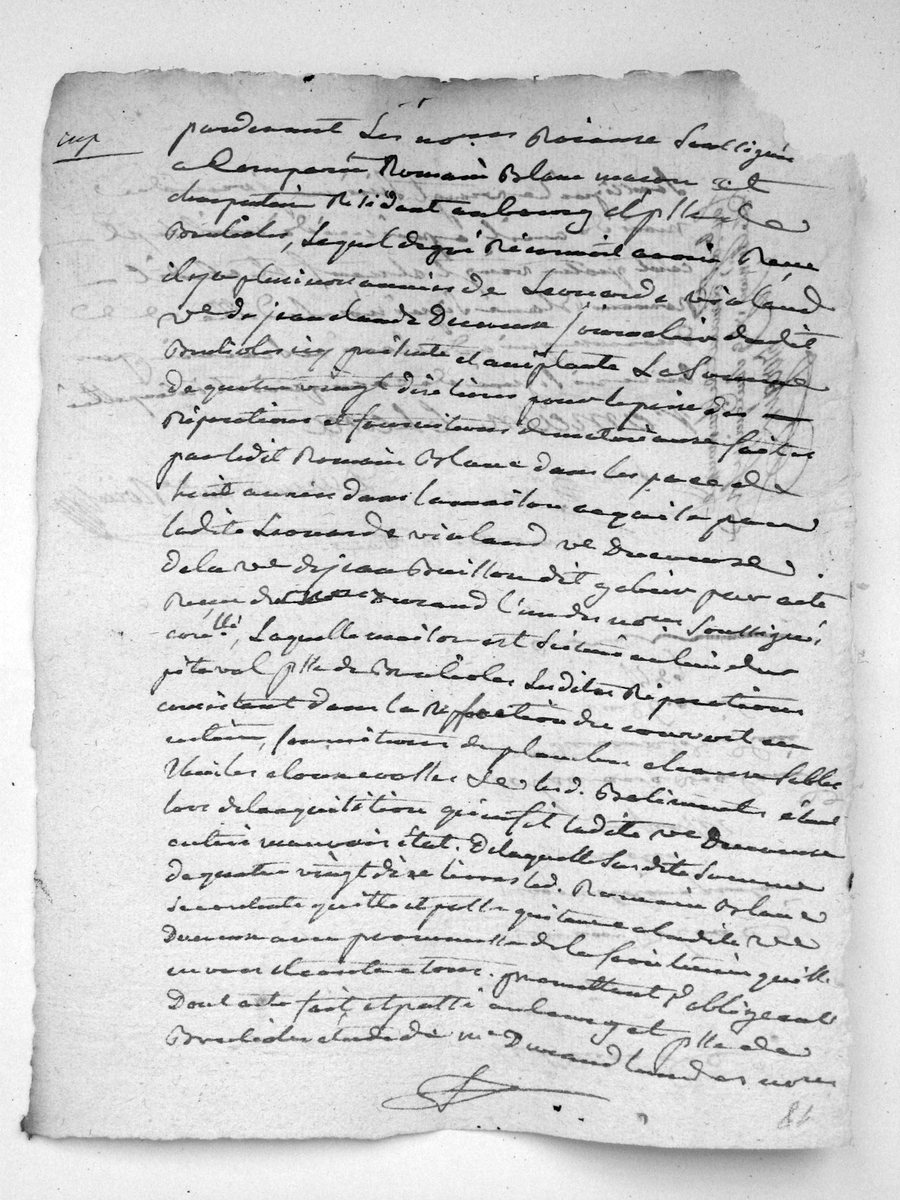 pardevant Les no.res Roiaux Soussignés
a Comparu Romain Blanc macon et
charpentier Résidant au bourg et p.sse de
Lequel de gré Reconnoit avoir Reçu
il y a plusieurs années de Leonarde vialand
v.e de jean claude Ducreux journalier dudit
icy presente et acceptante La Somme
de quatre vingt dix livres pour le prix des
Réparations et fournitures de materiaux faites
par ledit Romain Blanc dans les pace de
huit années dans la maison acquise par
ladite Leonarde vialand v.e Ducreux
De la v.e de jean dit par acte
Reçu du Durand l'un des no.res Soussignés
Laquelle maison est Scituée au lieu du
p.sse de Lesdites Réparations
consistant dans la Reffection du couvert en
entier, fournitures de planches chaux sable
thuiles clous Le tout. Batiment étant
lors de la aquisition qu'en fit ladite v.e Ducreux
en tres mauvais état. De laquelle Susdite Somme
De quatre vingt dix livres led. Romain Blanc
se contente quitte et passe quitance a ladite v.e
Ducreux avec promesse de la faire tenir quitte
envers et contre tous. promettent obligeant
Dont acte fait et passé au bourg et p.sse de
étude de m.e Durand l'un des no.res
81